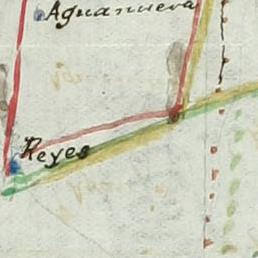 Aguanueva
Reyes